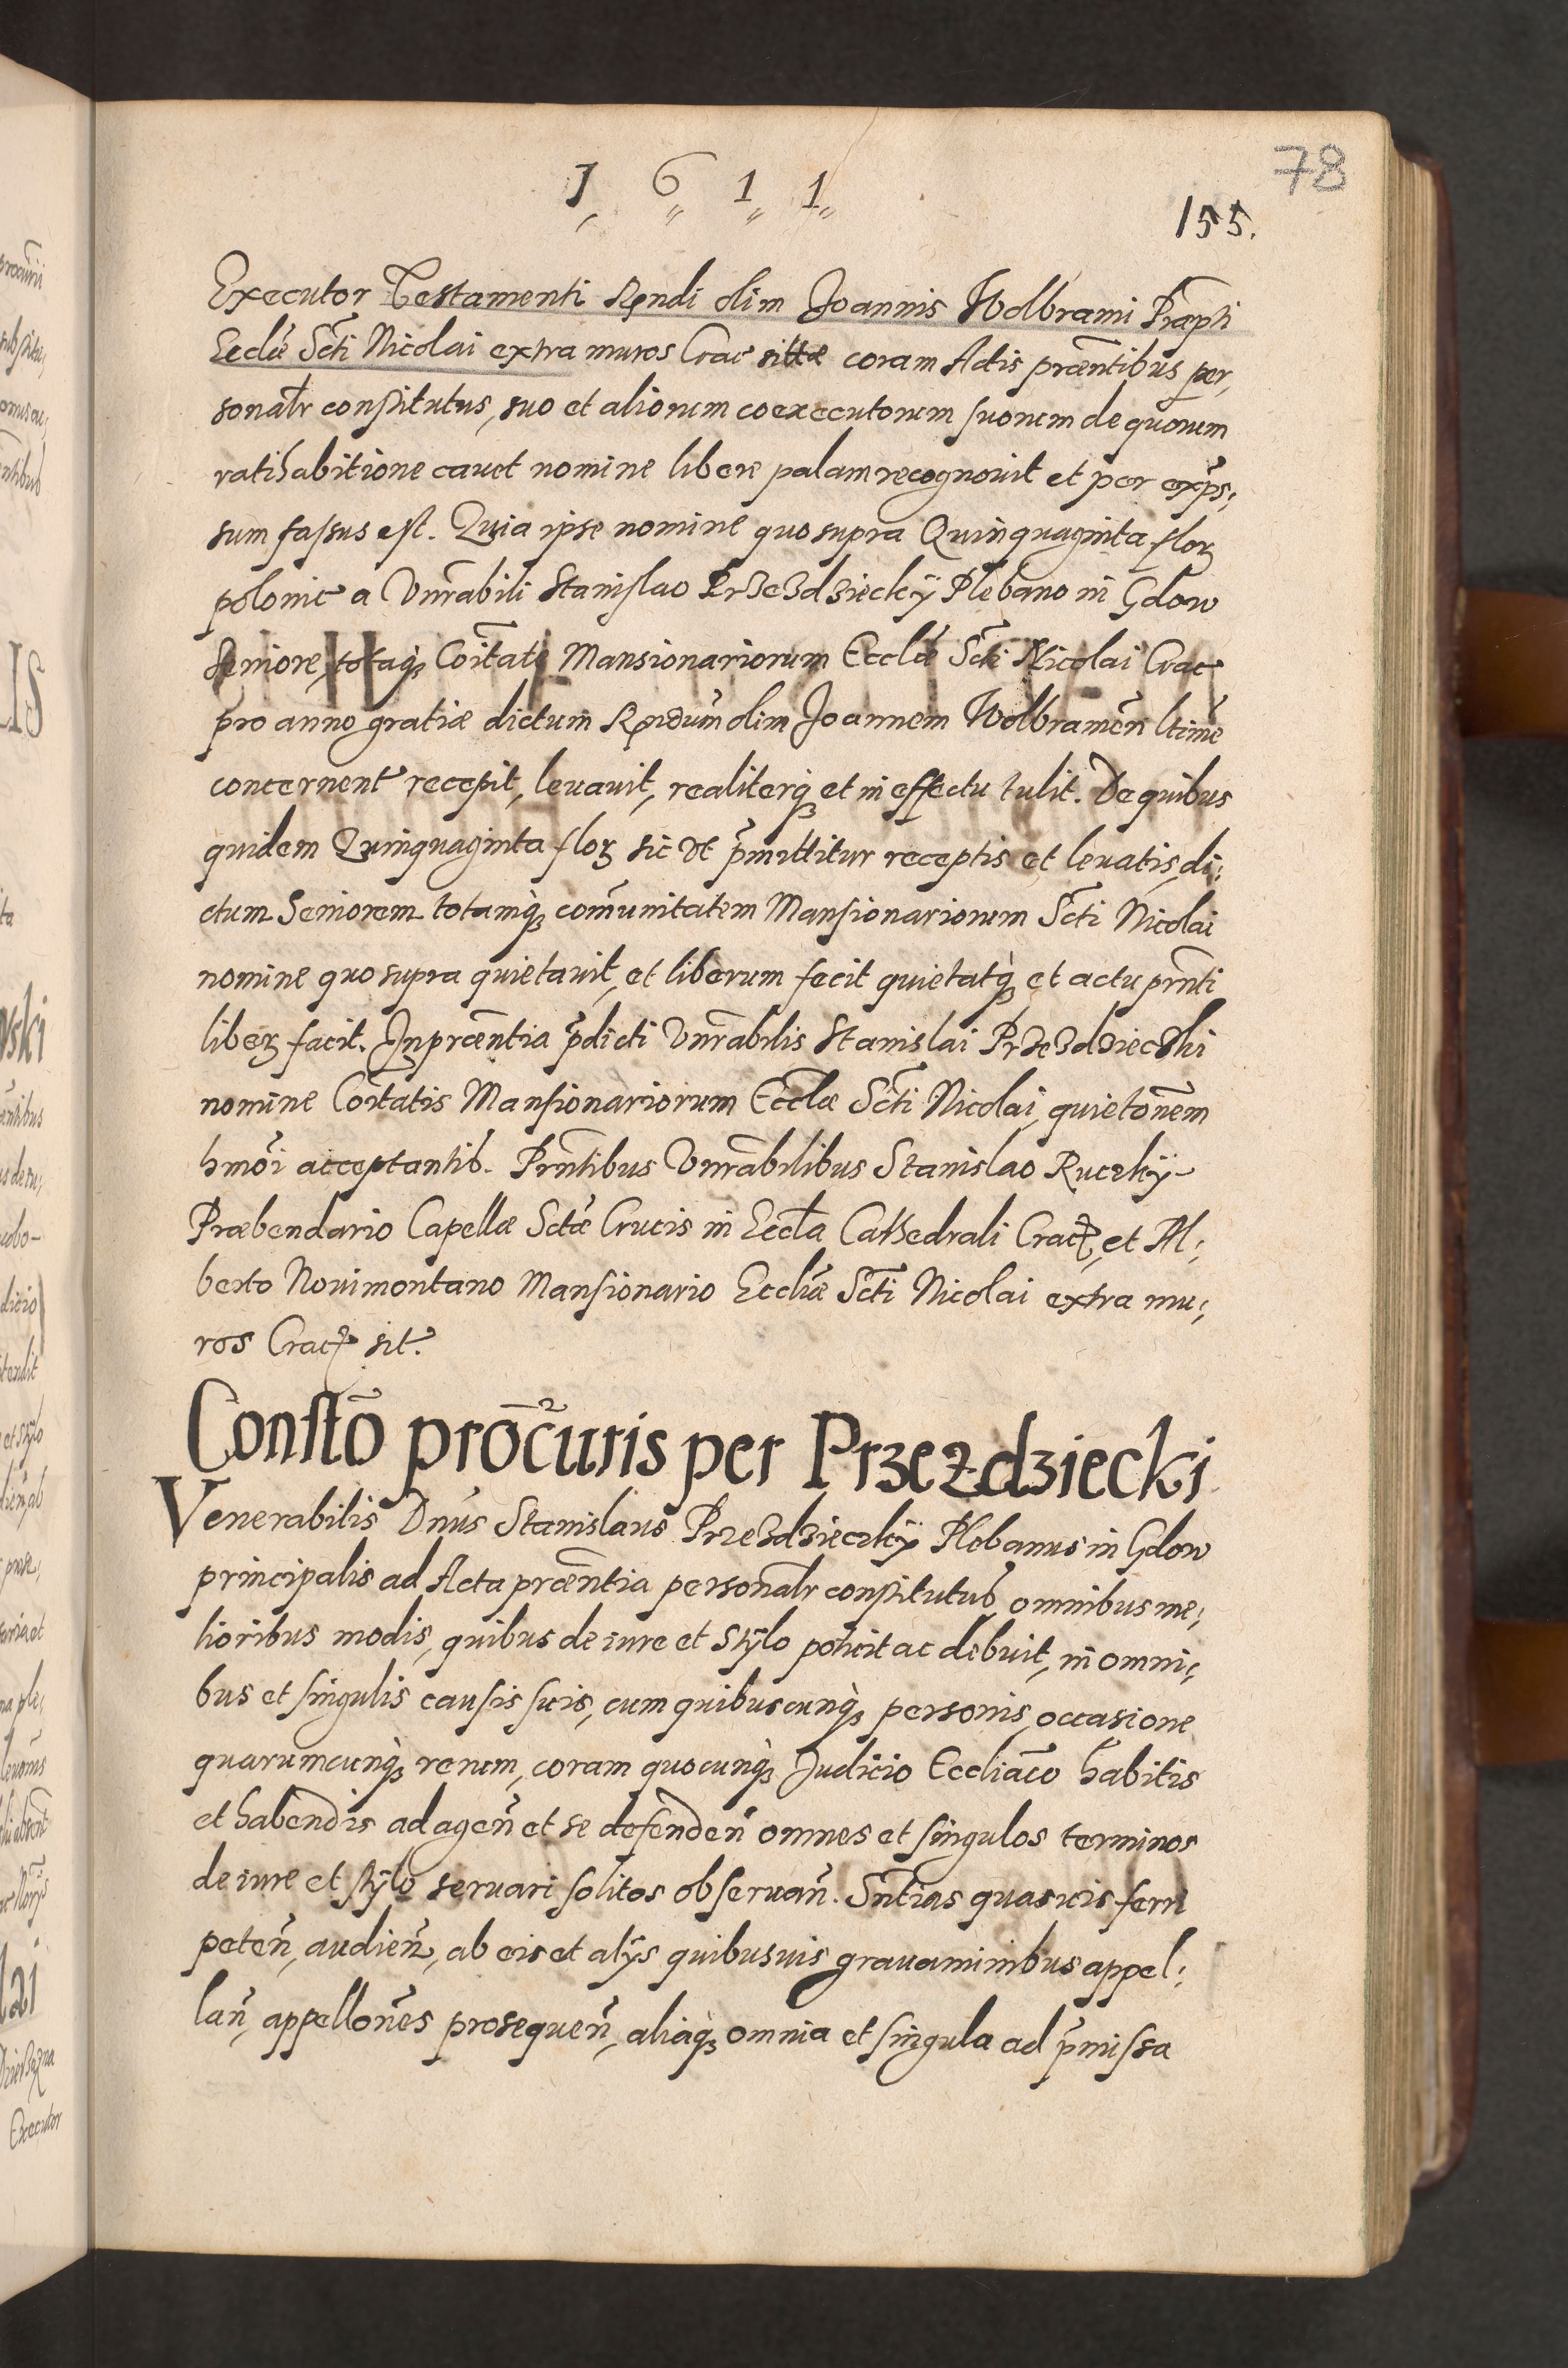 78
1 6 1 1
155.
Executor Testamenti Rndi olim Joannis Wolbrami Præpti
Ecclæ Scti Nicolai extra muros Crac sittæ coram Actis præntibus per,
sonalr constitutus, suo et aliorum coexecutorum suorum de quorum
ratihabitione cavet nomine libere palam recognovit et per exps,
sum fassus est. Quia ipse nomine quo supra Quinquaginta flor
polonic a Vnrabili Stanislao Przezdziecky Plebano in Gdow
Seniore, totaq; Coitate Mansionariorum Ecclæ Scti Nicolai Crac
pro anno gratiæ dictum Rndum olim Joannem Wolbramen ltime
concernent recepit, levavit, realiterq; et in effectu tulit. De quibus
quidem Quinquaginta flor sic vt pmittitur receptis et levatis, di;
ctum Seniorem totamq; comunitatem Mansionariorum Scti Nicolai
nomine quo supra quietavit, et liberum fecit quietatq; et actu prnti
liber facit. In præntia pdicti Vnrabilis Stanislai Przezdziecki
nomine Coitatis Mansionariorum Ecclæ Scti Nicolai, quietonem
hmoi acceptantib. Prntibus Vnrabilibus Stanislao Ruczky
Præbendario Capellæ Sctæ Crucis in Eccla Cathedrali Crac, et Al;
berto Novimontano Mansionario Eccliæ Scti Nicolai extra mu;
ros Crac sit.
Constō procuris per Przezdziecki
Venerabilis Dnus Stanislaus Przezdzieczky Plebanus in Gdow
principalis ad Acta præntia personalr constitutus omnibus me;
lioribus modis, quibus de iure et Stylo potuit ac debuit, in omni;
bus et singulis causis suis, cum quibuscunq; personis, occasione
quarumcunq; rerum, coram quocunq; Judicio Eccliaco habitis
et habendis ad agen et se defenden omnes et singulos terminos
de iure et stylo servari solitos observan. Sntias quasuis ferri
peten, audien, ab eis et alys quibusuis gravaminibus appel;
lan, appellones prosequen, aliaq; omnia et singula ad pmissa